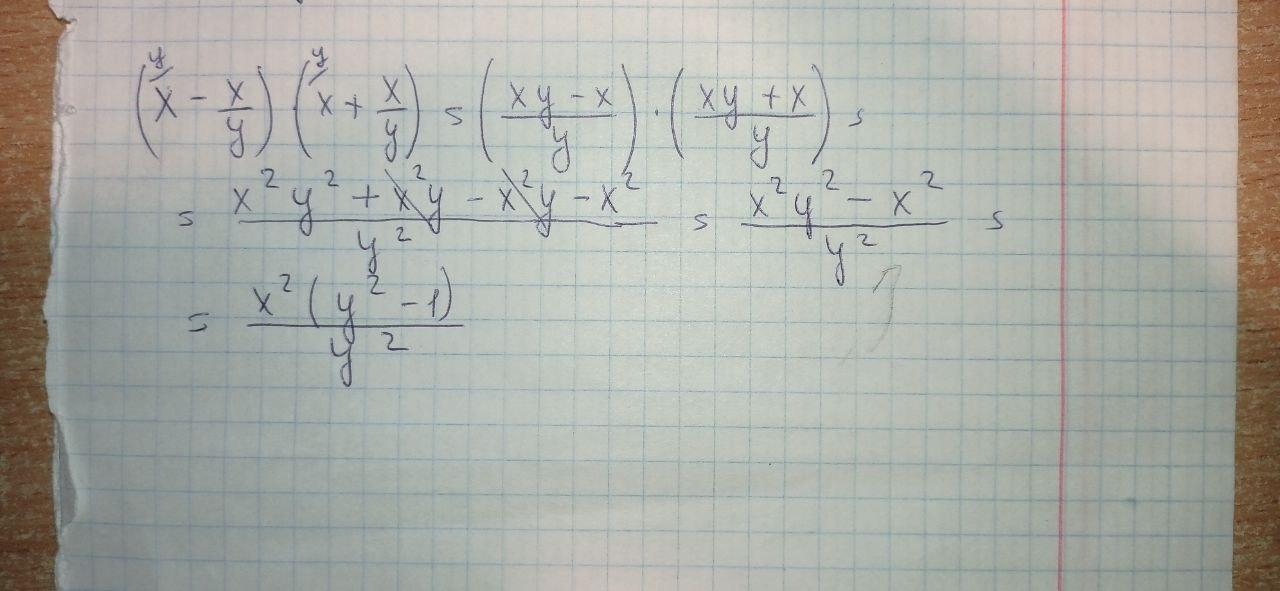 (x^y - x/y) · (x^y + x/y) = ((xy - x)/y) · ((xy + x)/y) =
= (x²y² + x²y - x²y - x²)/y² = (x²y² - x²)/y² =
= x²(y² - 1)/y²